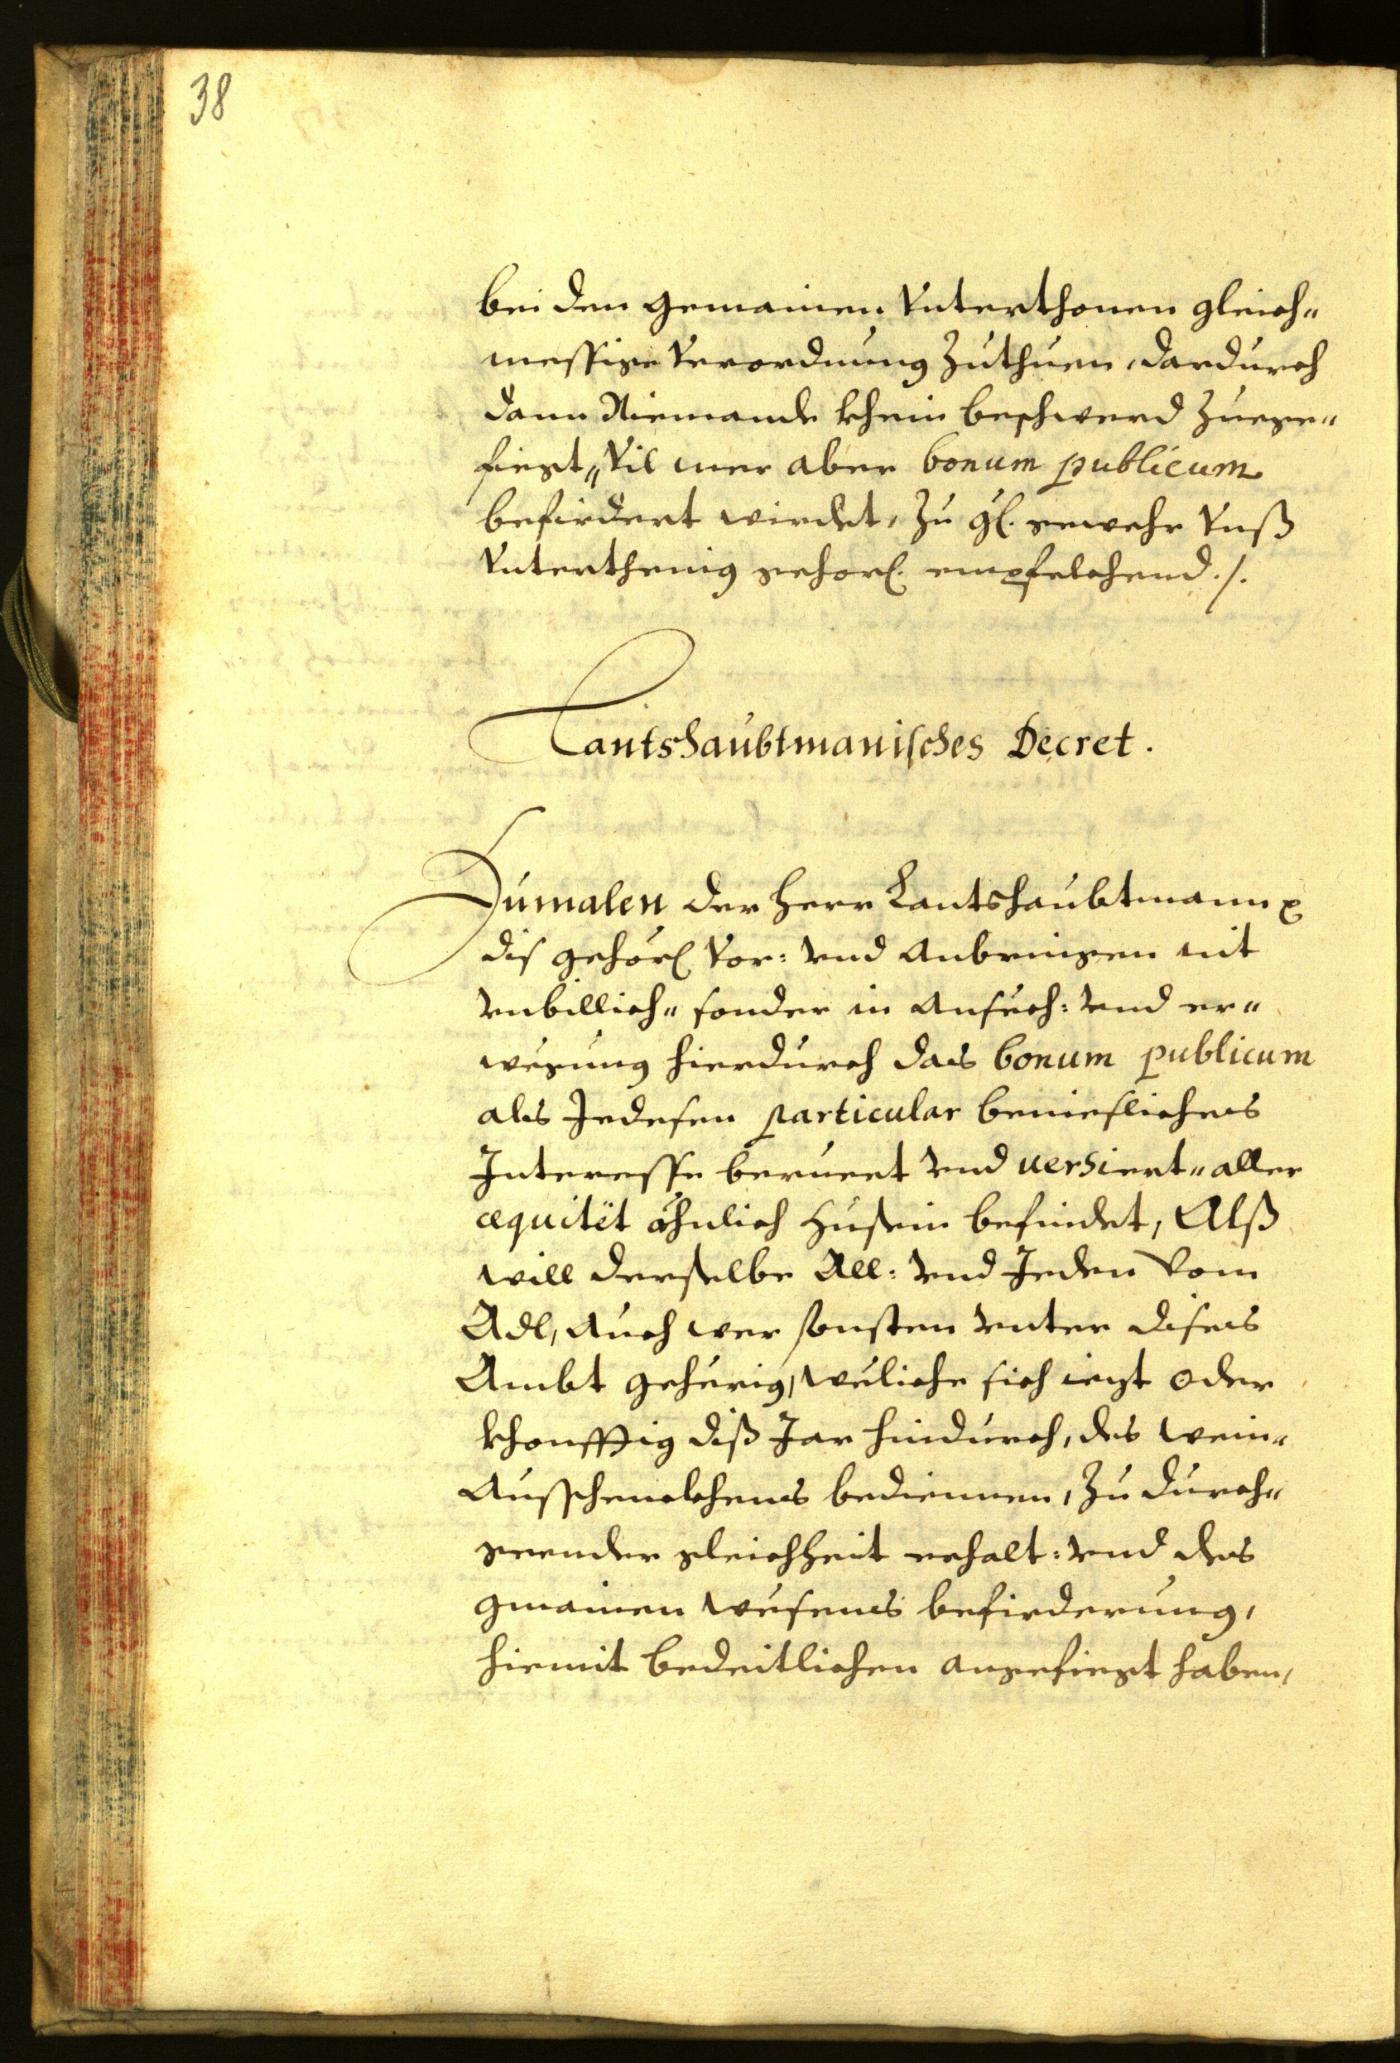 38
bei den gemainen Vnterthonen gleich„
messige Verordnung Zuthuen, dardurch
dann Niemande khein beschwerd Zuege„
fiegt„ Vil mer aber bonum publicum
befirdert wirdet, Zu gl. gewehr Vnß
Vnterthenig gehorl. empfelchend ./.
Lantshaubtmanisches Decret.
Zumalen der Herr Lantshaubtmann
dis gehorl Vor: vnd Anbringen nit
vnbillich„ sonder in Ansech: vnd er„
wegung hierdurch das bonum publicum
als Jedesen particular
Interesse beruert vnd versiert„ aller
æquitët ähnlich Zusein befindet, Alß
will derselbe All: vnd Jeden Vom
Adl, Auch wer sonsten vnter dises
Ambt gehërig, weliche sich iezt oder
khonfftig diß Jar hindurch, des wein„
Ausschenckhens bediennen, Zu durch„
geender gleichheit erhalt: vnd des
gmainen wesens befirderung,
hiemit bedeitlichen angefiegt haben,